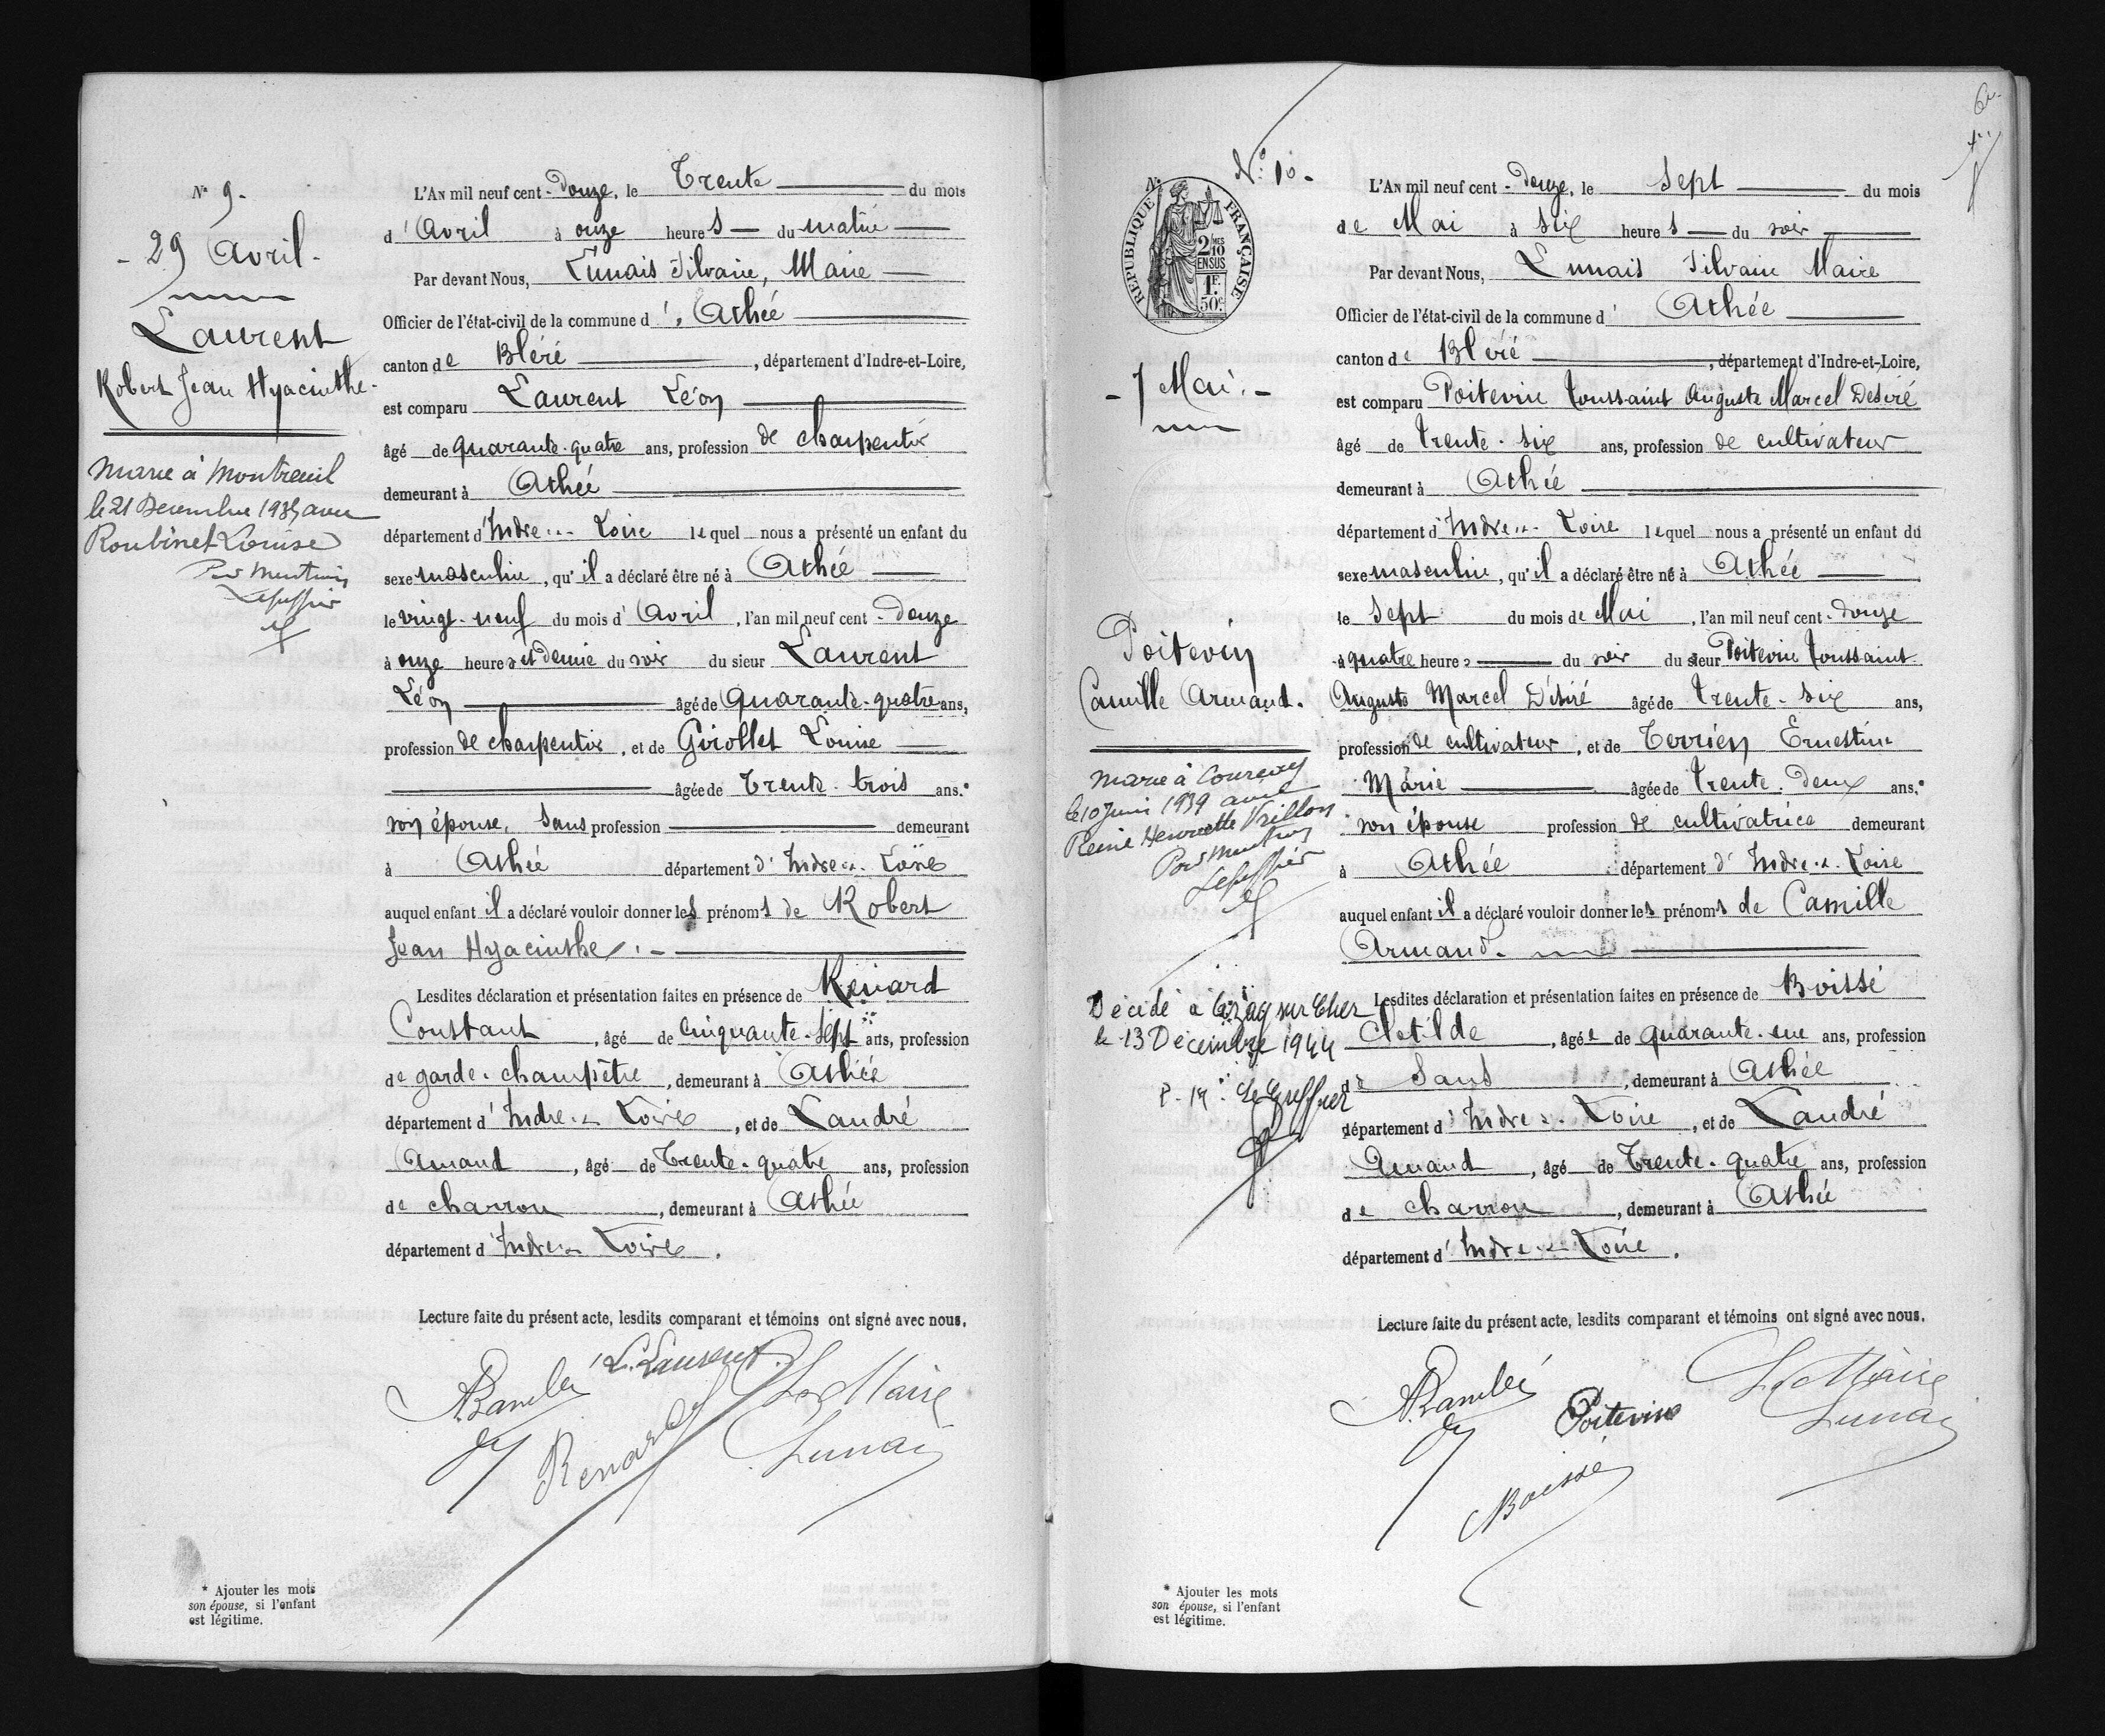 N° 9.
- 29 Avril -
Laurent
Robert Jean Hyacinthe.
Marié à Montreuil
le 21 Décembre 1935 avec
Roubinet Louise
Pour mention
L'AN mil neuf cent - Douze, le Trente du mois
d' Avril à onze heure s du matin
Par devant Nous, Lunais Silvain, Maire
Officier de l'état-civil de la commune d', Athée
canton de Bléré, département d'Indre-et-Loire,
est comparu Laurent Léon
âgé de quarante-quatre ans, profession de charpentier
demeurant à Athée
département d'Indre-&-Loire lequel nous a présenté un enfant du
sexe masculin, qu'il a déclaré être né à Athée
le vingt-neuf du mois d'Avril, l'an mil neuf cent - Douze
à onze heures et demie du soir du sieur Laurent
Léon âgé de Quarante-quatre ans,
profession de charpentier, et de Girollet Louise
âgée de Trente-trois ans.*
son épouse, sans profession demeurant
à Athée département d'Indre-&-Loire
auquel enfant il a déclaré vouloir donner les prénoms de Robert
Jean Hyacinthe. -
Lesdites déclaration et présentation faites en présence de Renard
Constant, âgé de Cinquante-sept ans, profession
de garde-champêtre, demeurant à Athée
département d'Indre-&-Loire, et de Landré
Amand, âgé de Trente-quatre ans, profession
de charron, demeurant à Athée
département d'Indre-&-Loire.
Lecture faite du présent acte, lesdits comparant et témoins ont signé avec nous.
L. Laurent
Le Maire
Renard
Lunais
* Ajouter les mots
son épouse, si l'enfant
est légitime.
N° 10 -
RÉPUBLIQUE FRANÇAISE
2/10 MES
EN SUS
1F.
50c
- 7 Mai. -
Poitevin
Camille Armand.
Marié à Courcay
le 10 Juin 1939 avec
Reine Henriette Vrillon
Pour mention
Décédé à Azay sur Cher
le 13 Décembre 1944
P. M. Le Greffier
L'AN mil neuf cent - Douze, le Sept du mois
de Mai à six heure s du soir
Par devant Nous, Lunais Silvain Maire
Officier de l'état-civil de la commune d' Athée
canton de Bléré, département d'Indre-et-Loire,
est comparu Poitevin Toussaint Auguste Marcel Desiré
âgé de trente-six ans, profession de cultivateur
demeurant à Athée
département d'Indre-&-Loire lequel nous a présenté un enfant du
sexe masculin, qu'il a déclaré être né à Athée
le Sept du mois de Mai, l'an mil neuf cent - Douze
à quatre heures du soir du sieur Poitevin Toussaint
Auguste Marcel Désiré âgé de trente-six ans,
profession de cultivateur, et de Terrien Ernestine
Marie âgée de trente-deux ans.*
son épouse profession de cultivatrice demeurant
à Athée département d'Indre-&-Loire
auquel enfant il a déclaré vouloir donner les prénoms de Camille
Armand.
Lesdites déclaration et présentation faites en présence de Boissé
Clotilde, âgée de quarante-une ans, profession
de Sans, demeurant à Athée
département d'Indre-&-Loire, et de Landré
Amand, âgé de Trente-quatre ans, profession
de charron, demeurant à Athée
département d'Indre-&-Loire.
Lecture faite du présent acte, lesdits comparant et témoins ont signé avec nous.
Le Maire
Poitevin
Lunais
Boissé
* Ajouter les mots
son épouse, si l'enfant
est légitime.